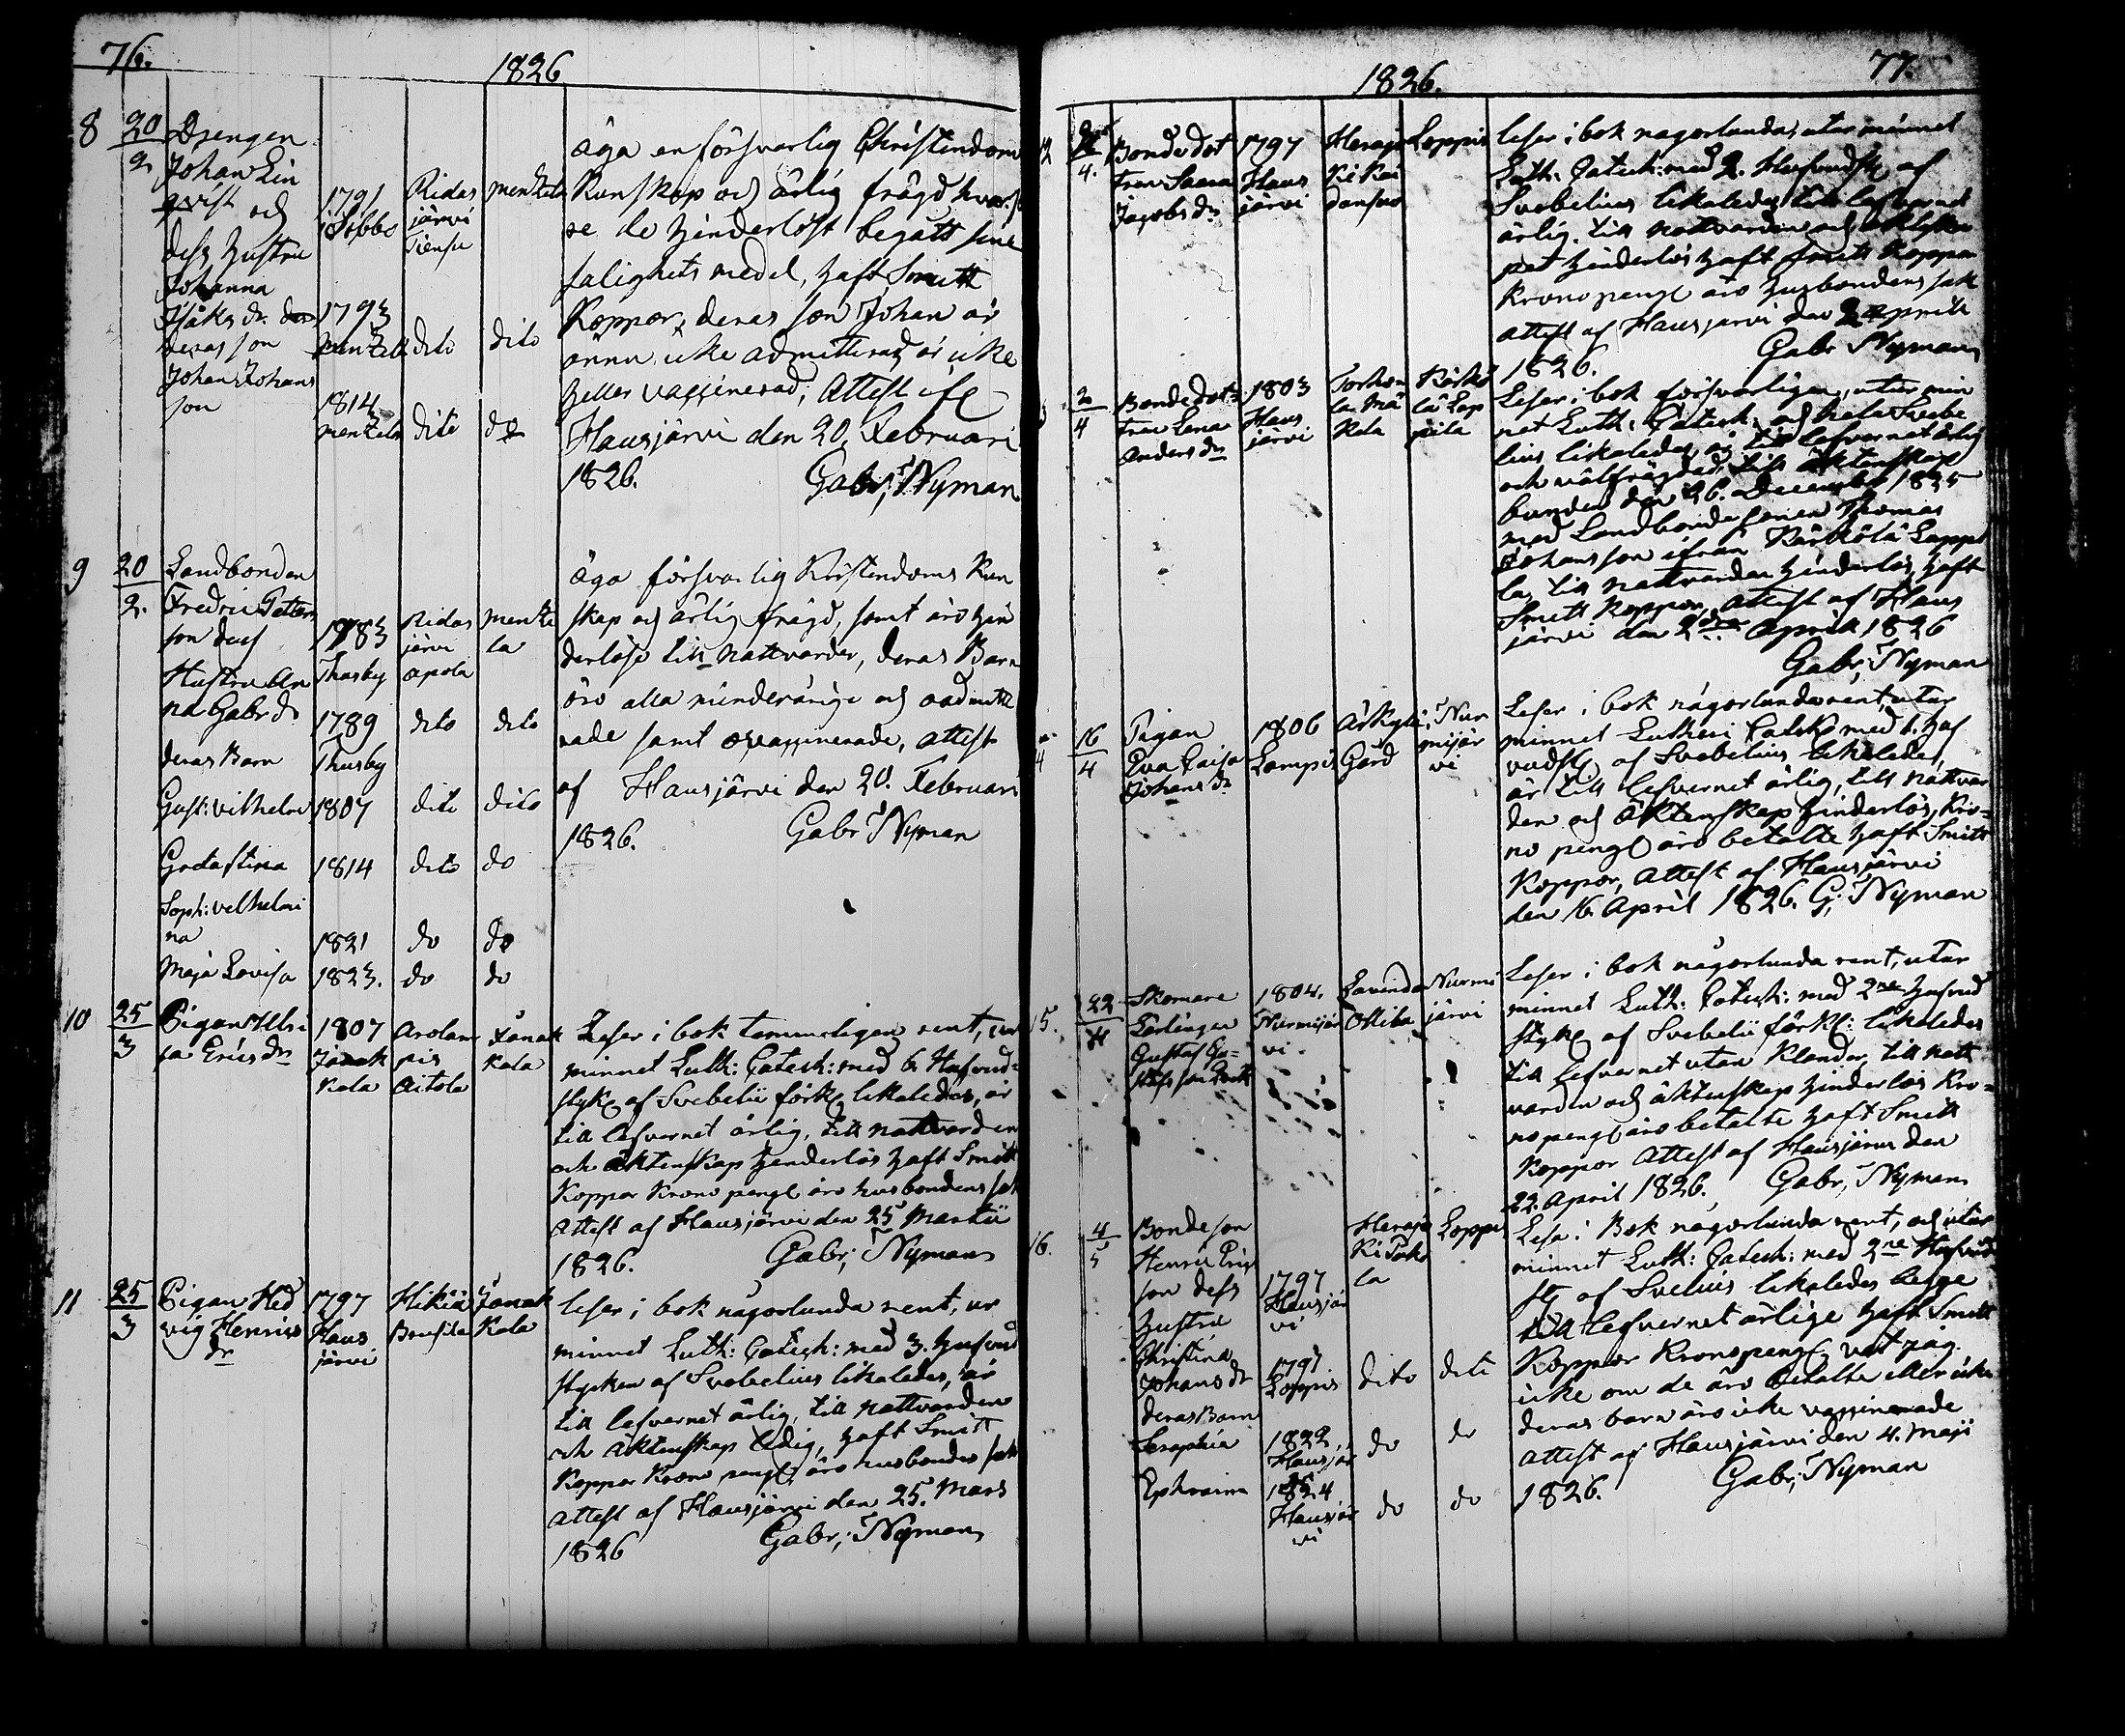 76.
1826
8 20/2 Drengen
Johan Lin
qvist och
dess hustru
Johanna
Isaks dr
deras son
Johan Johans
son
1791
i Sibbo
1793
Mentzela
1814
mentzela
Ridas
järvi
dito
dito
mentzela
dito
do
äga en försvarlig Christendoms
Kunskap och ärlig frägd hvar
salighets medel, haft Smitt
Koppor, deras son Johan är
ännu icke admitterad är icke
heller vaccinerad, Attest
Hausjärvi den 20. Februari
1826. Gabr; Nyman
9 20/2. Landbonden
Fredric Petters
son dess
Hustru An
na Gabr dr
deras Barn
Gust: vilhelm
Greta Stina
Soph: velhelmi
na
Maja Lovisa
1783
Thusby
1789
Thusby
1807
1814
1821
1823.
Ridas
järvi
apola
dito
dito
dito
do
do
mentze
la
dito
dito
do
do
do
äga försvarlig Kristendoms Kun
skap och ärlig frägd, samt äro hin
derlöse till Nattvarden, deras Barn
äro alla minderårige och oadmitte
rade samt ovaccinerade, attest
af Hausjärvi den 20. Februari
1826. Gabr Nyman
10 25/3 Pigan Ulri
ca Erics dr
1807
Janak
kala
Arolam
pis
Aitola
Janak
kala
Leser i bok temmeligen rent, ur
minnet Luth: Catech: med 6 Hufvud=
styk af Svebelii förkl likaledes, är
till lefvernet ärlig, till Nattvarden
och äktenskap hinderlös haft Smitt
Koppor Krono peng äro husbondens sak
Attest af Hausjärvi den 25 Martii
1826. Gabr; Nyman
11 25/3 Pigan Hed
vig Henrics
dr
1797
Haus
järvi
Hikiä
Janak
Kala
leser i bok någorlunda rent, ur
minnet Luth: Catech: med 3. hufvud
stycken af Svebelius likaledes, är
till lefvernet ärlig, till Nattvarden
och Äktenskap ledig, haft Smitt
Koppor Krono peng äro husbondes sak
attest af Hausjärvi den 25. Mars
1826 Gabr; Nyman
77.
1826.
12 4. Bonde dot
tren Saara
Jacobs dr
1797
Haus
järvi
Heraja
Loppis
leser i bok nagorlunda, utur minnet
Luth: Catech: med 2. Hufvudst af
Svebelius likaledes till lefvernet
ärlig, till nattvarden och äktenska
pet hinderlös haft smitt koppor
Kronopeng äro husbondens sak
attest af Hausjärvi den 2 Aprill
1826. Gabr Nyman
2/4 Bonde dot=
tren Lena
Anders dr
1803
Haus
järvi
Leser i bok försvarligen, utur min
net Luth: Catech: och hela Svebe
lius likaledes, är till lefvernet ärlig
och välfrägdad, till äktenskap
bunden den 26. December 1825
med Landbonde sonen Thomas
Johansson ifrån Kärkölä Lappi
la, till nattvarden hinderlös, haft
Smitt Koppor, Attest af Haus
järvi den 2dra April 1826
Gabr; Nyman
16/4 Pigan
Eva Caisa
Johans dr
1806
Lampis
Gård
Nur
mijär
vi
Leser i bok någorlunda rent, utur
minnet Lutheri Catek med 6. huf
vudst af Svebelius likaledes,
är till lefvernet ärlig, till nattvar
den och Äktenskap hinderlös, Kro=
no peng äro betalte haft Smitt
Koppor, Attest af Hausjärvi
den 16. April 1826. G; Nyman
15. 22 Skomare
Lärlingen
Gustaf Gu=
stafs son
1804.
Nurmijär
vi
Nurmi
järvi
Leser i bok någorlunda rent, utur
minnet Luth: Catech: med 2ne hufvud
styk af Svebelii förkl: likaledes
till lefvernet utan klander, till natt
varden och äktenskap hinderlös Kro=
nopeng äro betalte haft Smitt
Koppor Attest af Hausjärvi den
22. April 1826. Gabr; Nyman
16. 4/5 Bonde son
Henric Eric
son dess
hustru
Christina
Johans dr
deras Barn
Seraphia
Ephraim
1797
Hausjär
vi
1797
Loppis
1822
Hausjär
1824
Hausjär
vi
Heraja
dito
do
do
Loppis
dito
do
do
Lesa i Bok någorlunda rent, och utur
minnet Luth: Catech: med 2ne Hufvud
st af Svelius likaledes begge
till lefvernet ärlige haft Smitt
Koppor Kronopeng vet jag
icke om de äro betalte eller icke
deras barn äro icke vaccinerade
attest af Hausjärvi den 4. Maji
1826. Gabr; Nyman